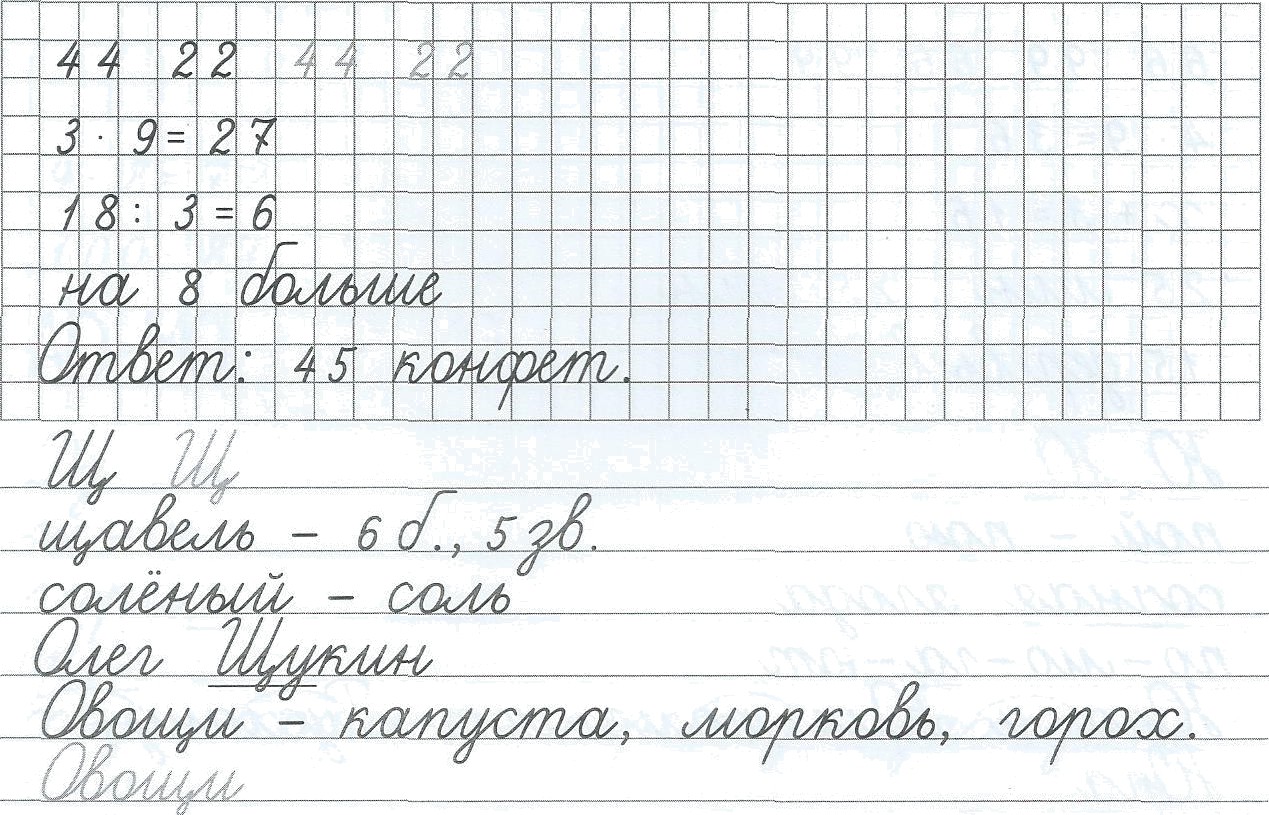 44 22 44 22
3 · 9 = 27
18 : 3 = 6
на 8 больше
Ответ: 45 конфет.
Щ Щ
щавель – 6 б., 5 зв.
солёный – соль
Олег Щукин
Овощи – капуста, морковь, горох.
Овощи